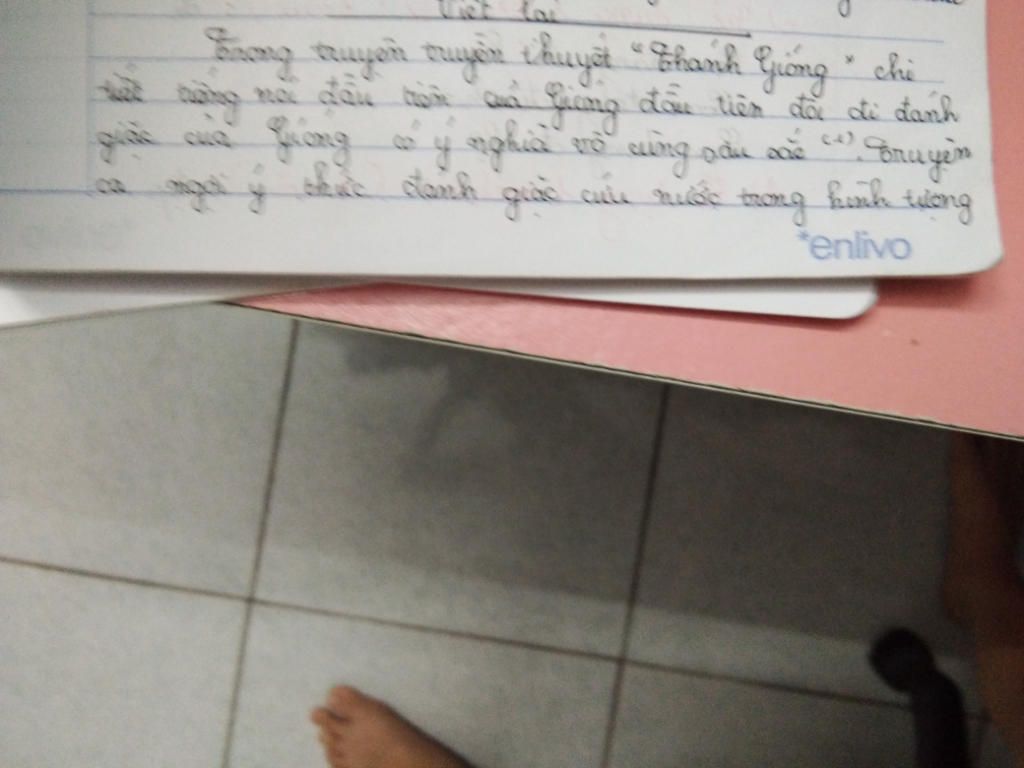 Viết lại
Trong truyện truyền thuyết "Thánh Gióng" chi
tiết tiếng nói đầu tiên của Gióng đầu tiên đòi đi đánh
giặc của Gióng có ý nghĩa vô cùng sâu sắc (1). Truyện
ca ngợi ý thức đánh giặc cứu nước trong hình tượng
*enlivo